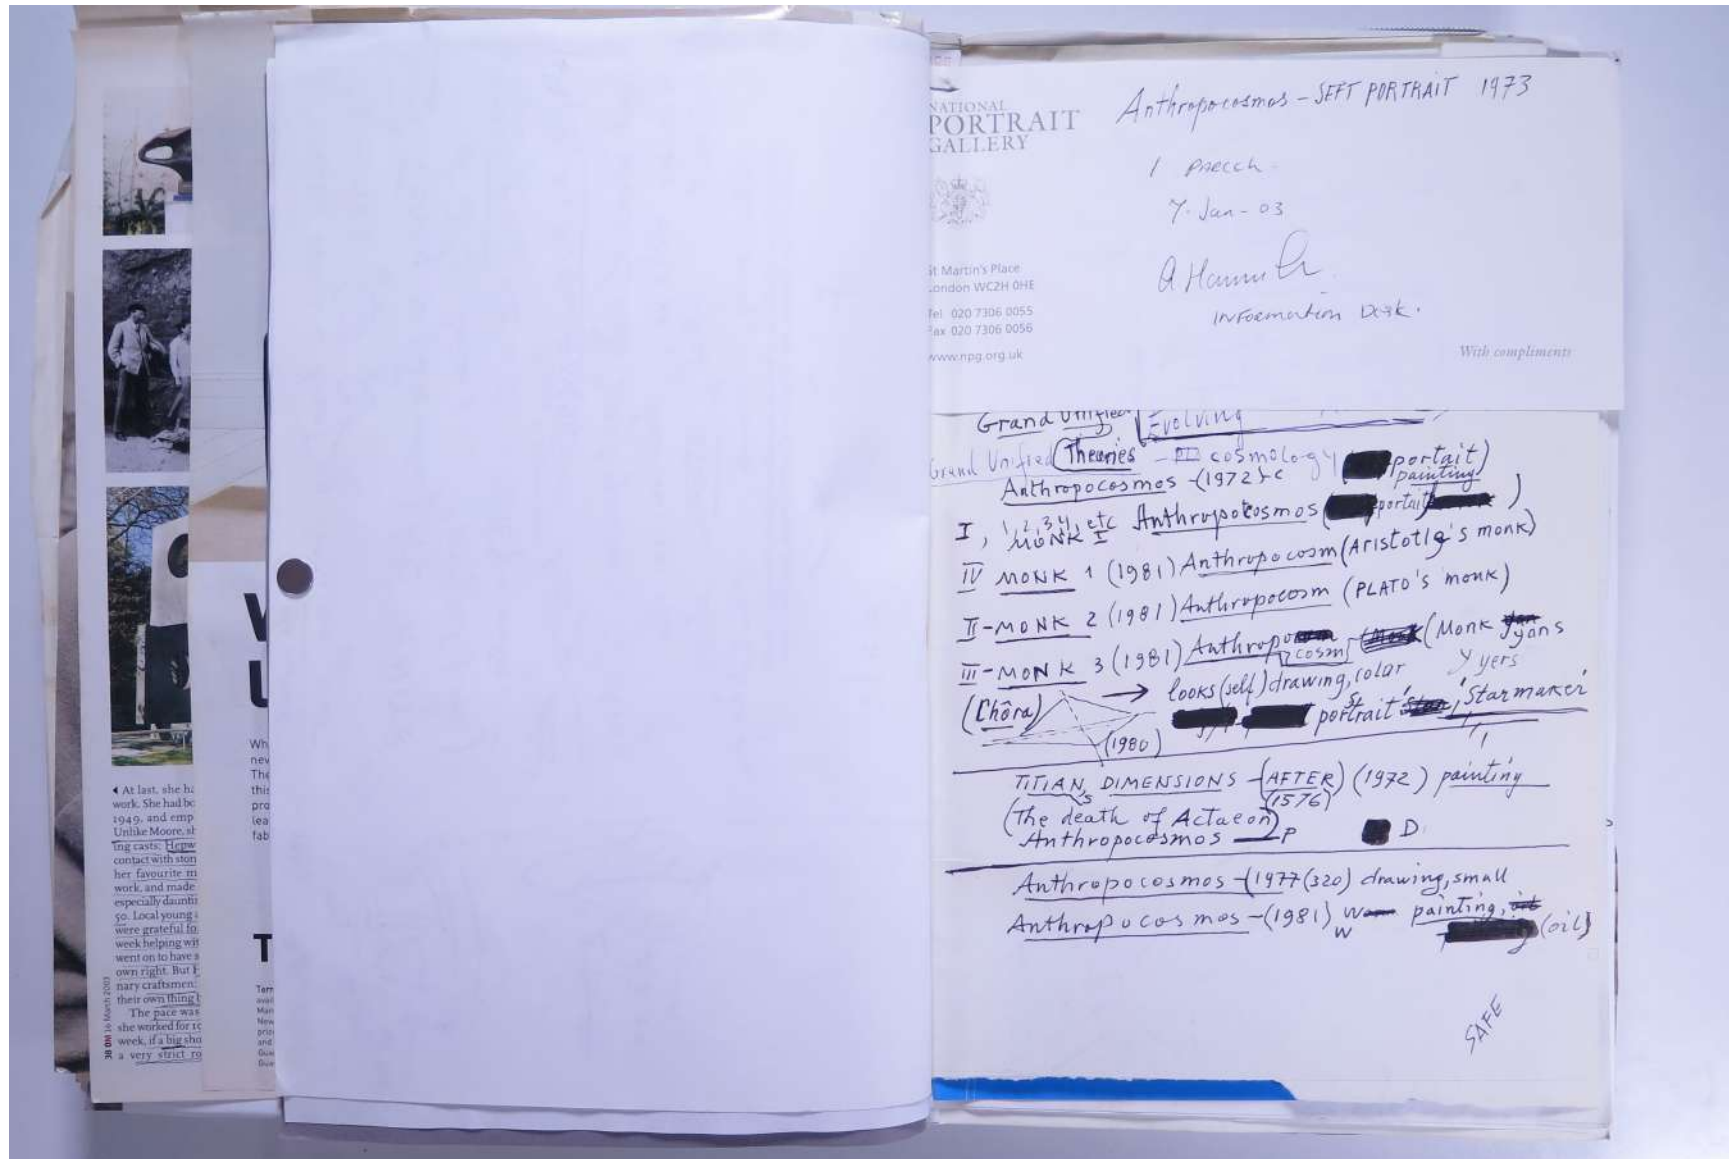 ◀ At last, she ha
work. She had bo
1949, and emp
Unlike Moore, sh
ing casts: Hepw
contact with ston
her favourite m
work, and made
especially daunti
50. Local young
were grateful fo
week helping wit
went on to have s
own right. But
nary craftsmen:
their own thing
The pace was
she worked for 10
week, if a big sho
a very strict ro
38 OM 16 March 2003
Wh
new
The
this
pro
lea
fab
T
Term
avai
Man
New
prize
and
Gua
Gua
NATIONAL
PORTRAIT
GALLERY
St Martin's Place
London WC2H 0HE
Tel 020 7306 0055
Fax 020 7306 0056
www.npg.org.uk
Anthropocosmos – SEFT PORTRAIT 1973
1
7-Jan-03
INFormation Desk.
With compliments
Grand Unified Evolving
Grand Unified Theories – cosmology portait)
Anthropocosmos –(1972) painting
I, 1,2,3,4, etc Anthropocosmos ( portait )
MONK I
IV MONK 1 (1981) Anthropocosm (ARistotle's monk)
II-MONK 2 (1981) Anthropocosm (PLATO'S monk)
III-MONK 3 (1981) Anthropocosm (Monk yans
yyers
(Chôra) → looks (self) drawing, color
portrait 'Starmaker'
(1980)
TITIAN'S DIMENSIONS –(AFTER) (1972) painting
(1576)
(The death of Actaeon)
Anthropocosmos — P D
Anthropocosmos –(1977 (320) drawing, small
Anthropocosmos –(1981) W painting, (oil)
W
SAFE